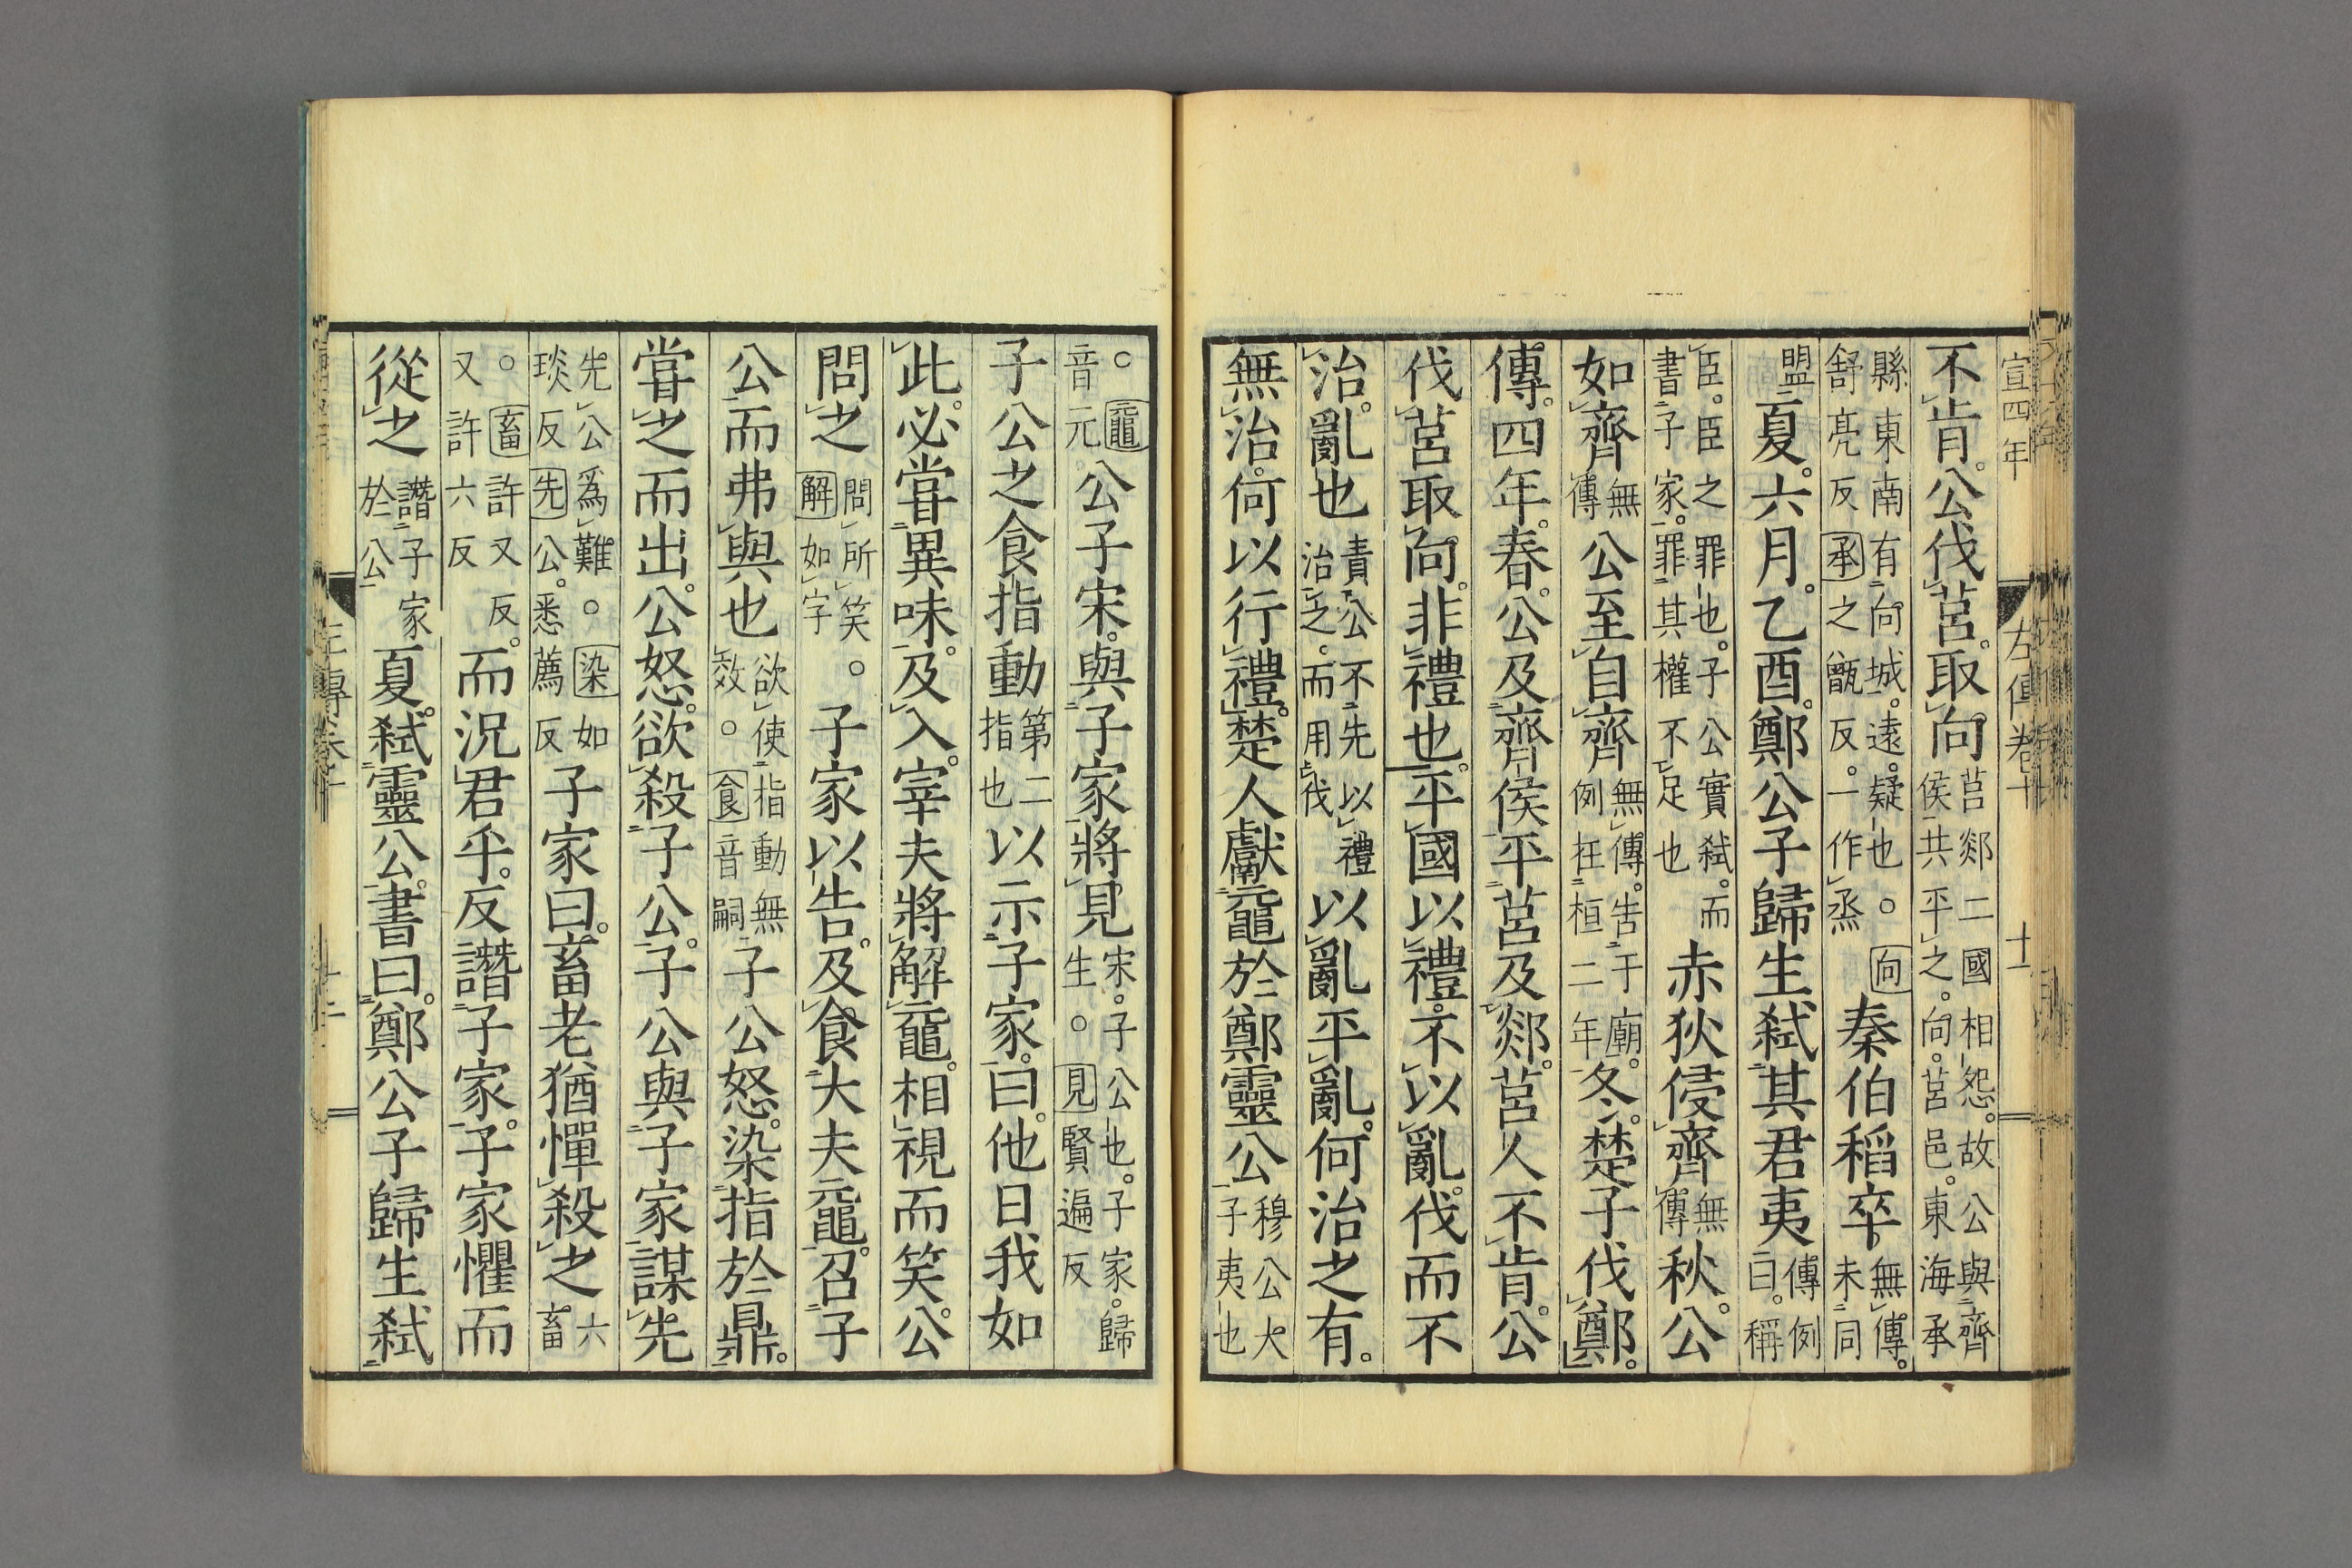 宣四年
不肯。公伐莒。取向。莒郯二國相怨。故公與齊侯共平之。向。莒邑。東海承
縣東南有向城。遠。疑也。○向舒亮反承之甑反。一作烝秦伯稻卒無傳。未同
盟夏。六月。乙酉。鄭公子歸生弒其君夷傳例曰。稱
臣。臣之罪也。子公實弒。而書子家。罪其權不足也赤狄侵齊無傳秋。公
如齊無傳公至自齊無傳。告于廟。例在桓二年冬。楚子伐鄭。
傳。四年。春。公及齊侯平莒及郯。莒人不肯。公
伐莒取向。非禮也。平國以禮。不以亂。伐而不
治。亂也責公不先以禮治之。而用伐以亂平亂。何治之有。
無治。何以行禮。楚人獻黿於鄭靈公穆公大子夷也
左傳卷十
十一
○黿音元公子宋。與子家將見宋。子公也。子家。歸生。○見賢遍反
子公之食指動第二指也以示子家。曰。他日我如
此。必嘗異味。及入。宰夫將解黿。相視而笑。公
問之問所笑。○解如字子家以告。及食大夫黿。召子
公而弗與也欲使指動無效。○食音嗣子公怒。染指於鼎。
嘗之而出。公怒。欲殺子公。子公與子家謀先
先公爲難。○染如琰反先公。悉薦反子家曰。畜老猶憚殺之六畜
○畜許又反。又許六反而況君乎。反譖子家。子家懼而
從之譖子家於公夏。弒靈公。書曰。鄭公子歸生弒